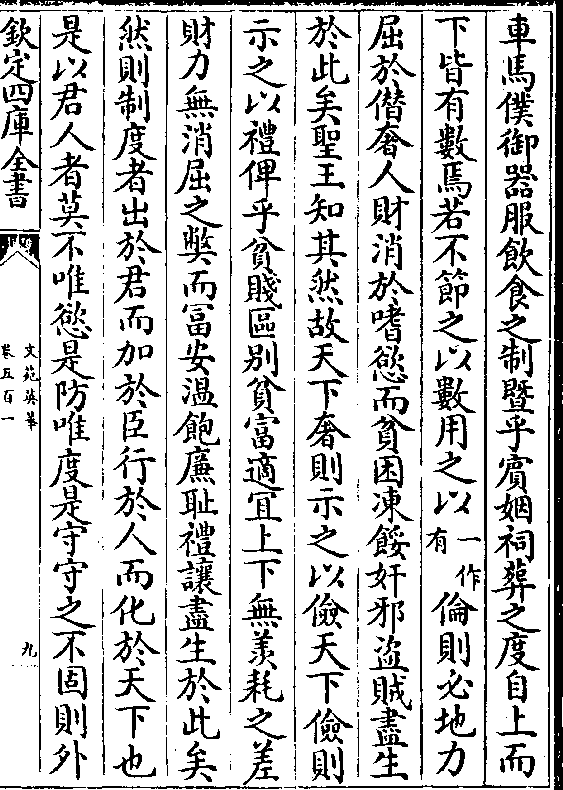 車馬僕御器服飲食之制暨乎賓姻祠葬之度自上而
下皆有數焉若不節之以數用之以一作有倫則必地力
屈於僭奢人財消於嗜慾而貧困凍餒奸邪盜賊盡生
於此矣聖王知其然故天下奢則示之以儉天下儉則
示之以禮俾乎貧賤區别貧富適宜上下無羨耗之差
財力無消屈之弊而富安温飽廉耻禮讓盡生於此矣
然則制度者出於君而加於臣行於人而化於天下也
是以君人者莫不唯慾是防唯度是守守之不固則外
欽定四庫全書
文苑英華
卷五百一
九